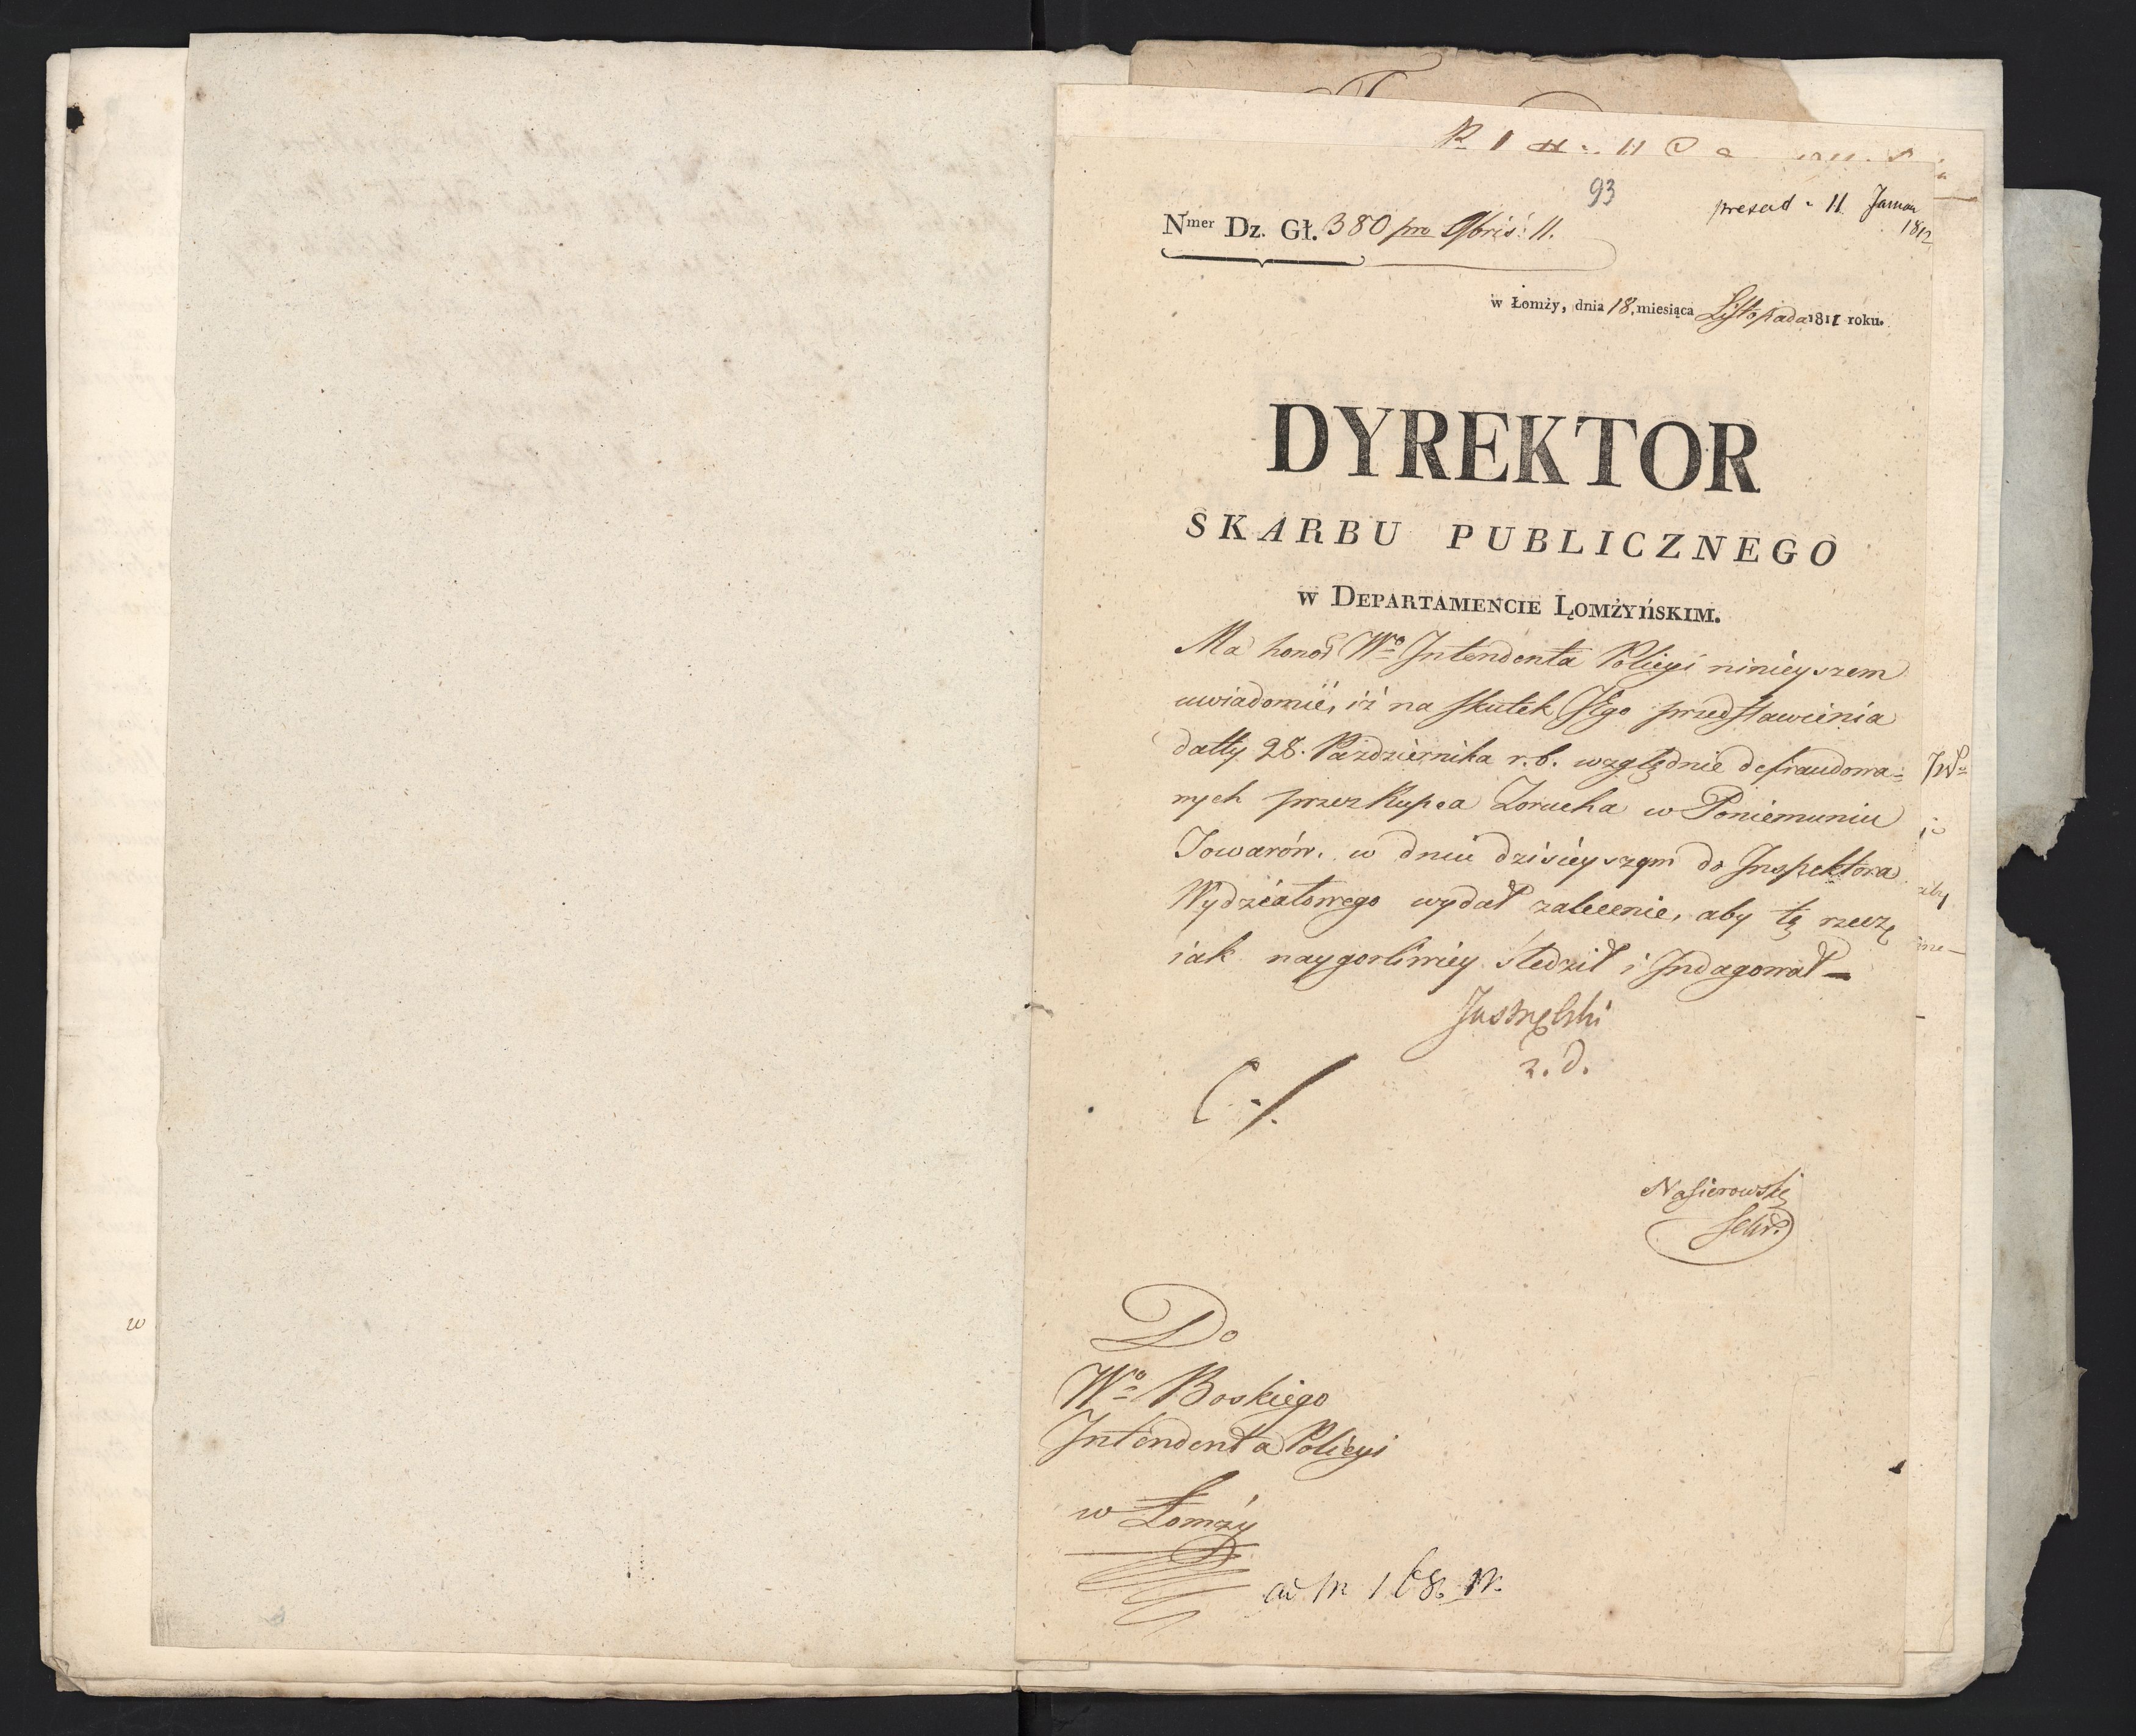 93
N<sup>mer</sup> Dz. Gł. 380 pro 9bris: 11.
presend. 11 Januar
1812
w Łomży, dnia 18. miesiąca Listopada 1811 roku.
DYREKTOR
SKARBU PUBLICZNEGO
w Departamencie Łomżyńskim.
Ma honor W° Intendenta Policyi nінieyszem
uwiadomić, iż na skutek JEgo przedstawienia
datty 28. Pazdziernika r. b. względnie defraudowa=
nych przez Kupca Zorucha w Poniemuniu
Towarów. w dniu dzisieyszym do Inspektora
Wydziałowego wydał zalecenie, aby tę rzecz
iak naygorliwiey śledził i Indagował —
Jastrzębski
z. d.
Nasierowski
Sekr.
Do
W° Boskiego
Intendenta Policyi
w Łomży
aby